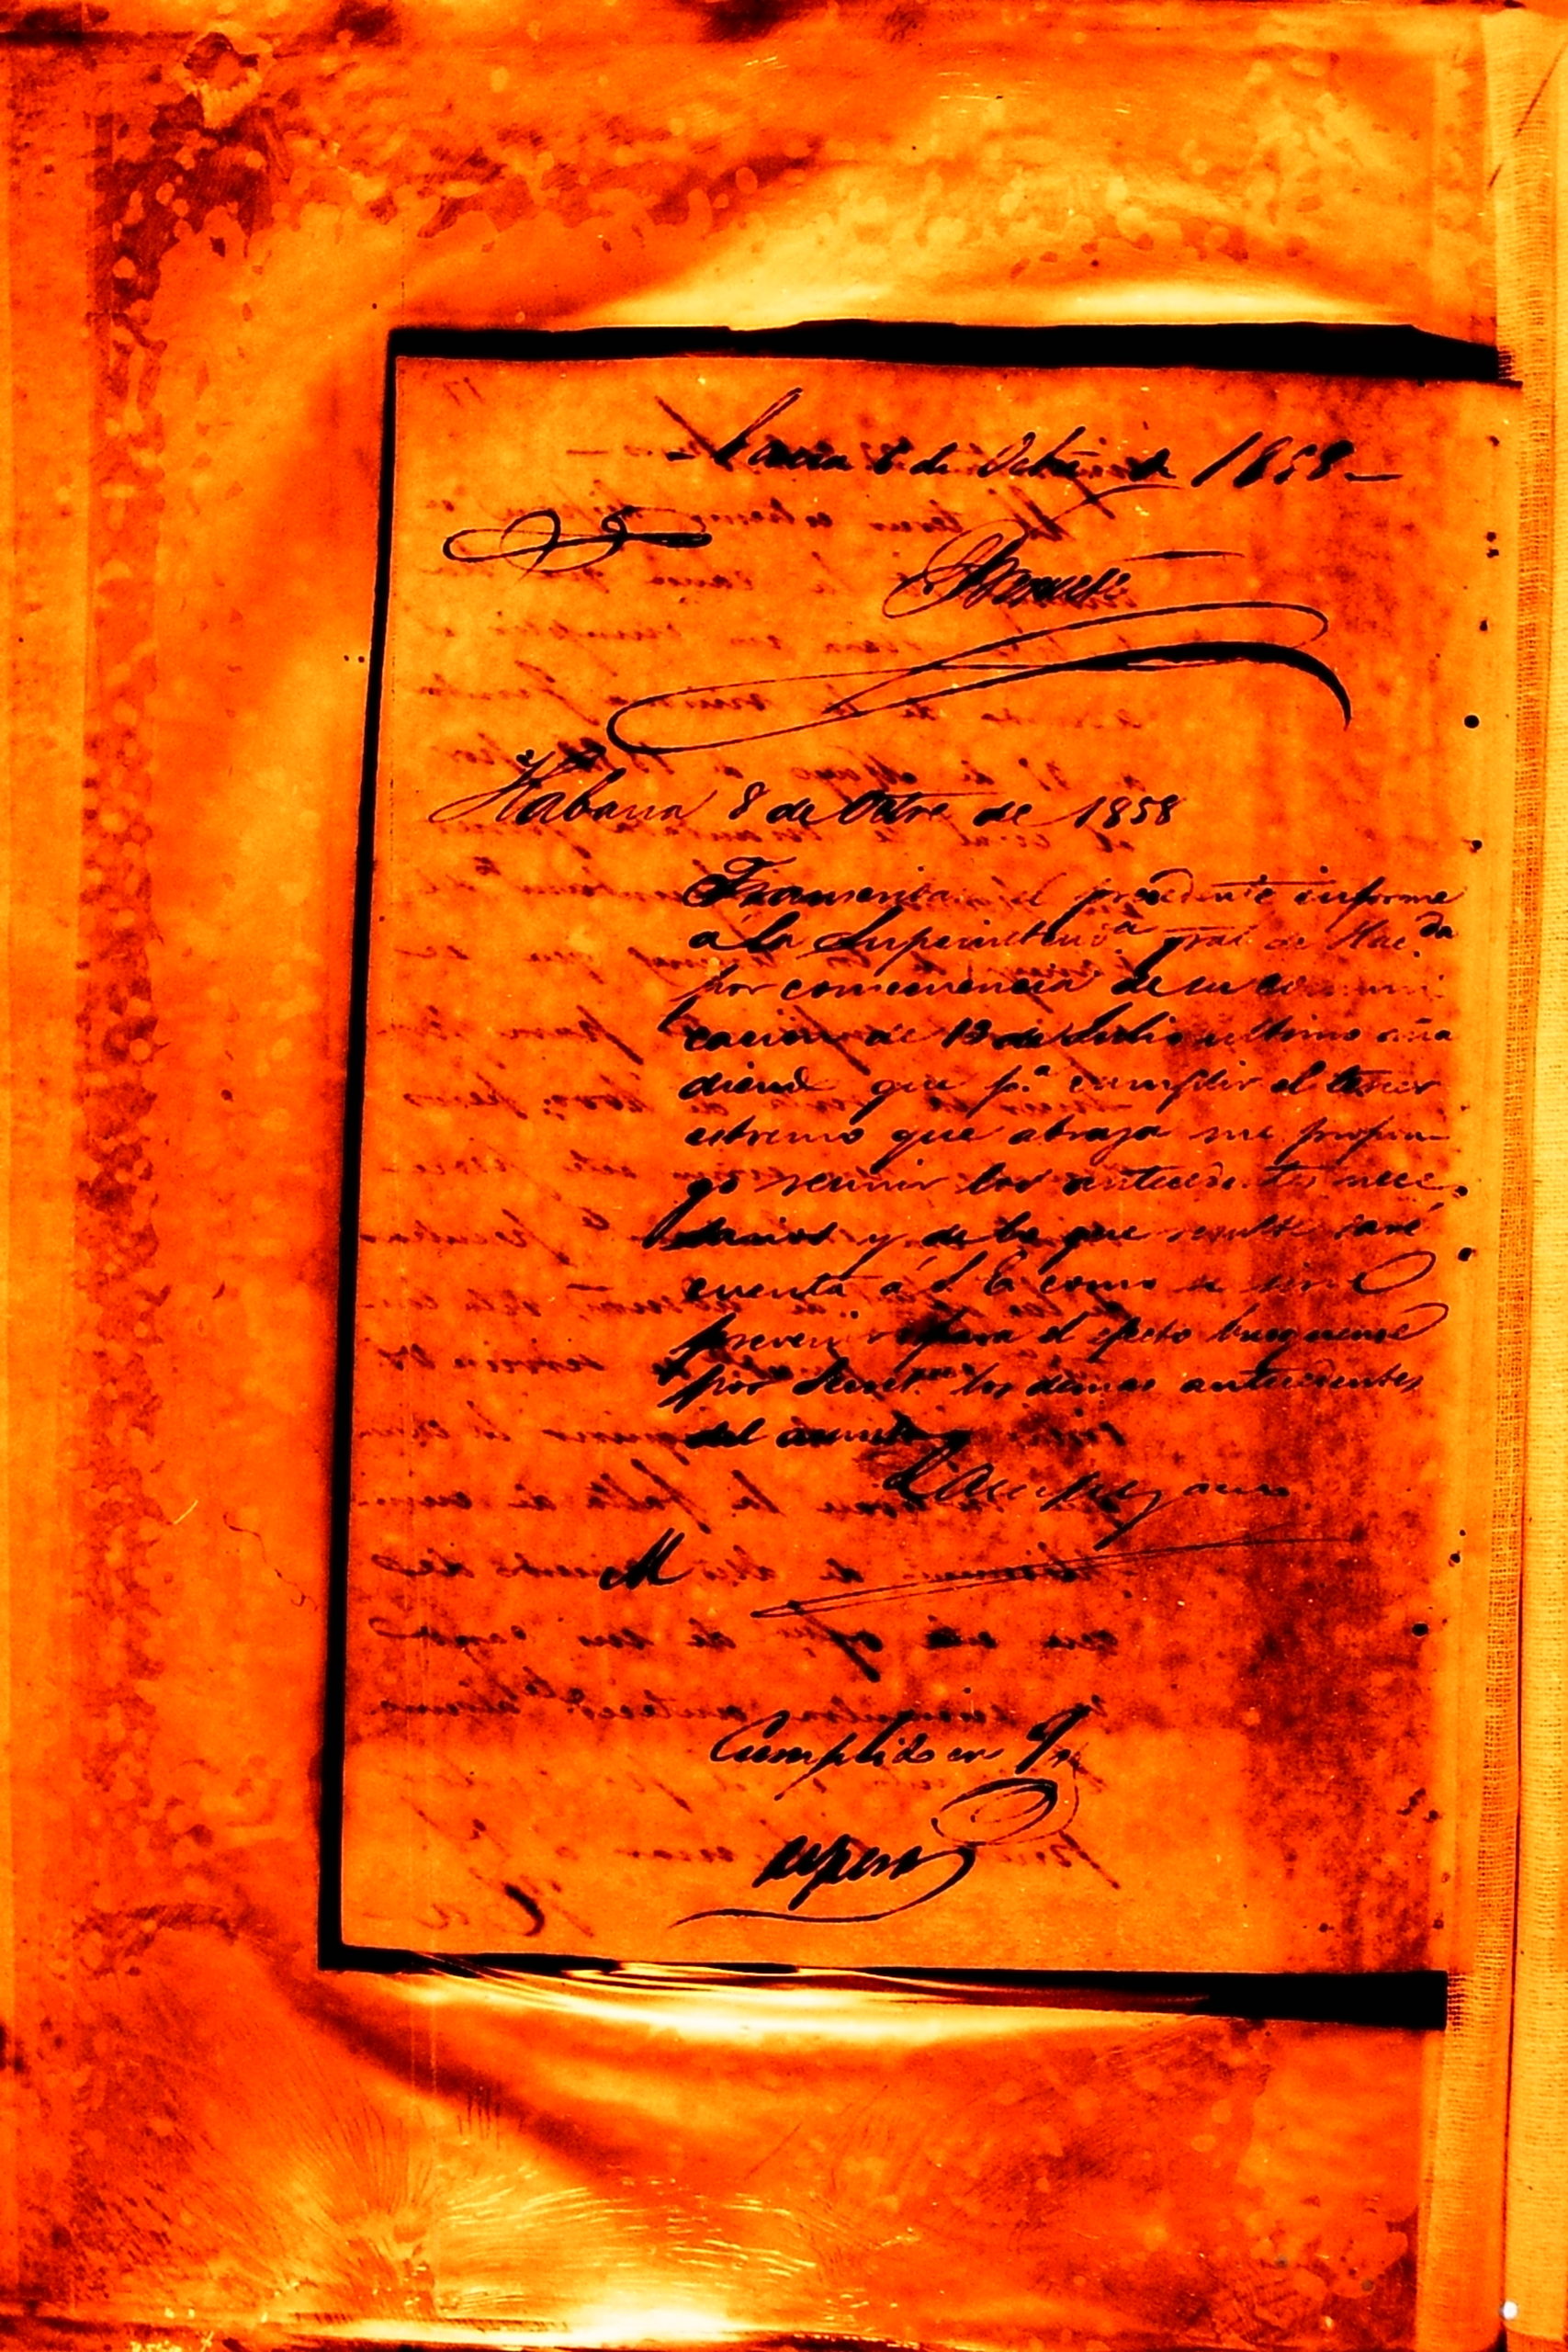 de Octre de 1858
Habana 8 de Octre de 1858
Transcriba el precedente informe
á la Superintend.ª gral de Hac.da
por consecuencia de su comuni
cacion de 13 de Julio ultimo aña
diend que p.ª cumplir el tercer
estremo que abraza me propon
go reunir los antecedentes nece
sarios y de lo que resulte daré
cuenta á S. E. como se sirve
prevenir para el efecto busquense
por Secret.ª los demas antecedentes
del asunto
M
Cumplido en